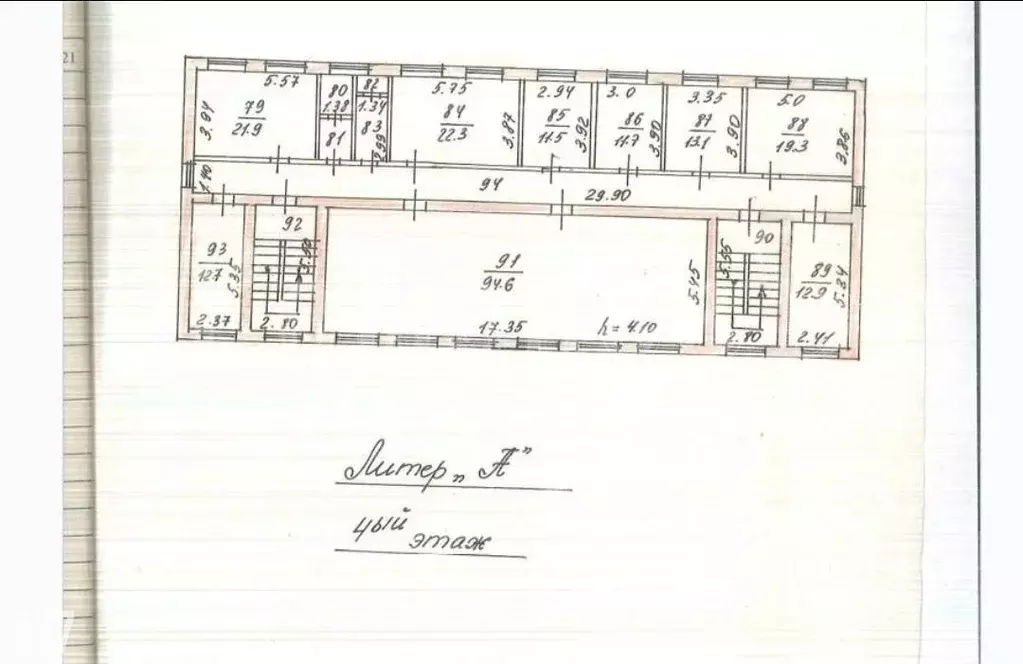 21
5.57 80 82 5.75 2.94 3.0 3.35 5.0
3.94 79 1.38 1.34 84 3.87 85 3.92 86 3.90 87 3.90 88 3.86
21.9 81 83 2.99 22.3 11.5 11.7 13.1 19.3
1.40 94 29.90
93 92 91 90 89
12.7 5.35 5.50 94.6 5.45 5.55 12.9 5.34
2.37 2.80 17.35 h = 4.10 2.80 2.41
Литер „А"
4ый
этаж